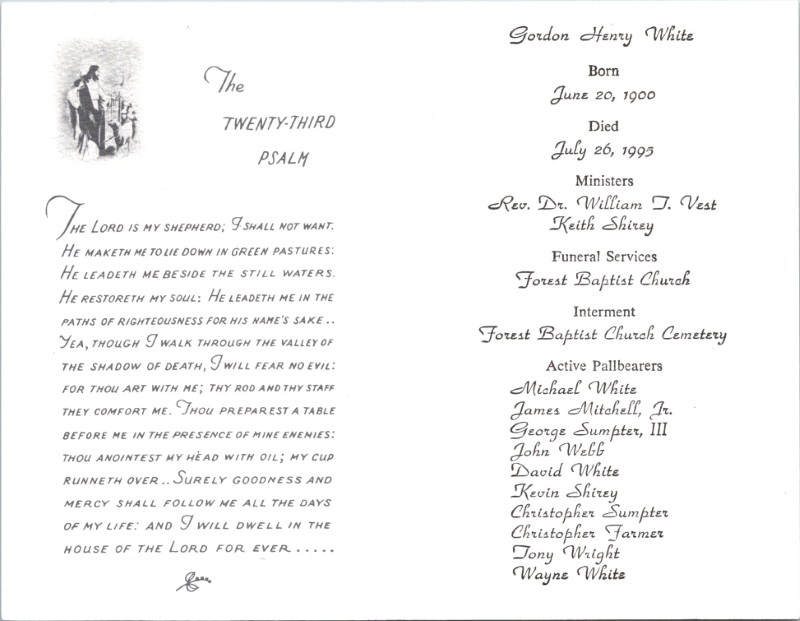 The
TWENTY-THIRD
PSALM
THE LORD IS MY SHEPHERD; I SHALL NOT WANT.
HE MAKETH ME TO LIE DOWN IN GREEN PASTURES:
HE LEADETH ME BESIDE THE STILL WATERS.
HE RESTORETH MY SOUL: HE LEADETH ME IN THE
PATHS OF RIGHTEOUSNESS FOR HIS NAME'S SAKE..
YEA, THOUGH I WALK THROUGH THE VALLEY OF
THE SHADOW OF DEATH, I WILL FEAR NO EVIL:
FOR THOU ART WITH ME; THY ROD AND THY STAFF
THEY COMFORT ME. THOU PREPAREST A TABLE
BEFORE ME IN THE PRESENCE OF MINE ENEMIES:
THOU ANOINTEST MY HEAD WITH OIL; MY CUP
RUNNETH OVER.. SURELY GOODNESS AND
MERCY SHALL FOLLOW ME ALL THE DAYS
OF MY LIFE: AND I WILL DWELL IN THE
HOUSE OF THE LORD FOR EVER.....
Gordon Henry White
Born
June 20, 1900
Died
July 26, 1995
Ministers
Rev. Dr. William T. Vest
Keith Shirey
Funeral Services
Forest Baptist Church
Interment
Forest Baptist Church Cemetery
Active Pallbearers
Michael White
James Mitchell, Jr.
George Sumpter, III
John Webb
David White
Kevin Shirey
Christopher Sumpter
Christopher Farmer
Tony Wright
Wayne White